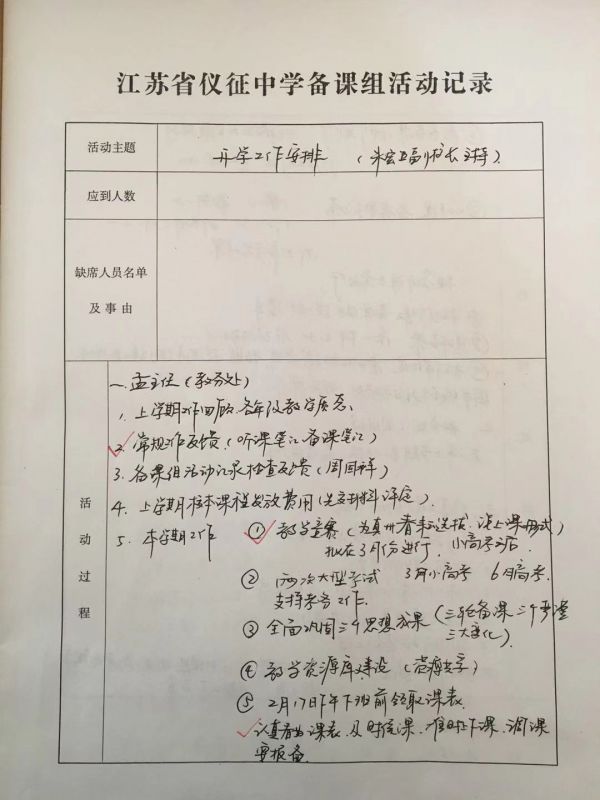 江苏省仪征中学备课组活动记录
活动主题
开学工作安排 (朱宏卫副校长主持)
应到人数
缺席人员名单
及事由
活动过程
一.孟主任(教务处)
1. 上学期工作回顾,各年段教学质态.
2. 常规工作反馈(听课笔记 备课笔记)
3. 备课组活动记录检查反馈(周国祥)
4. 上学期校本课程发放费用(先交材料评定).
5. 本学期工作 ① 教学竞赛(为真州春季选拔,课上课形式)
拟在3月份进行,小高考之后.
② 两次大型考试 3月小高考 6月高考.
支持考务工作.
③ 全面巩固三个思想成果(三轮备课 三个
三大变化).
④ 教学资源库建设(资源共享)
⑤ 2月17日下午下班前领取课表.
认真看出课表,及时候课,准时下课,调课
要报备.